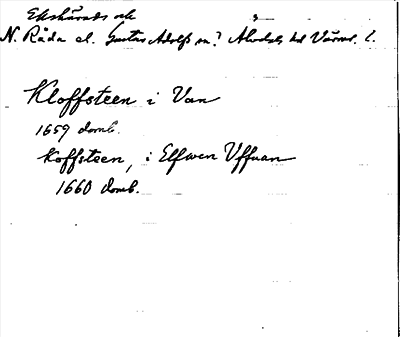 Ekshärads och
N. Råda el. Gustav Adolfs sn? Älvdals hd Värml. l.
Kloffsteen i Van
1659 domb.
Koffsteen, i Elfwen Uffuan
1660 domb.